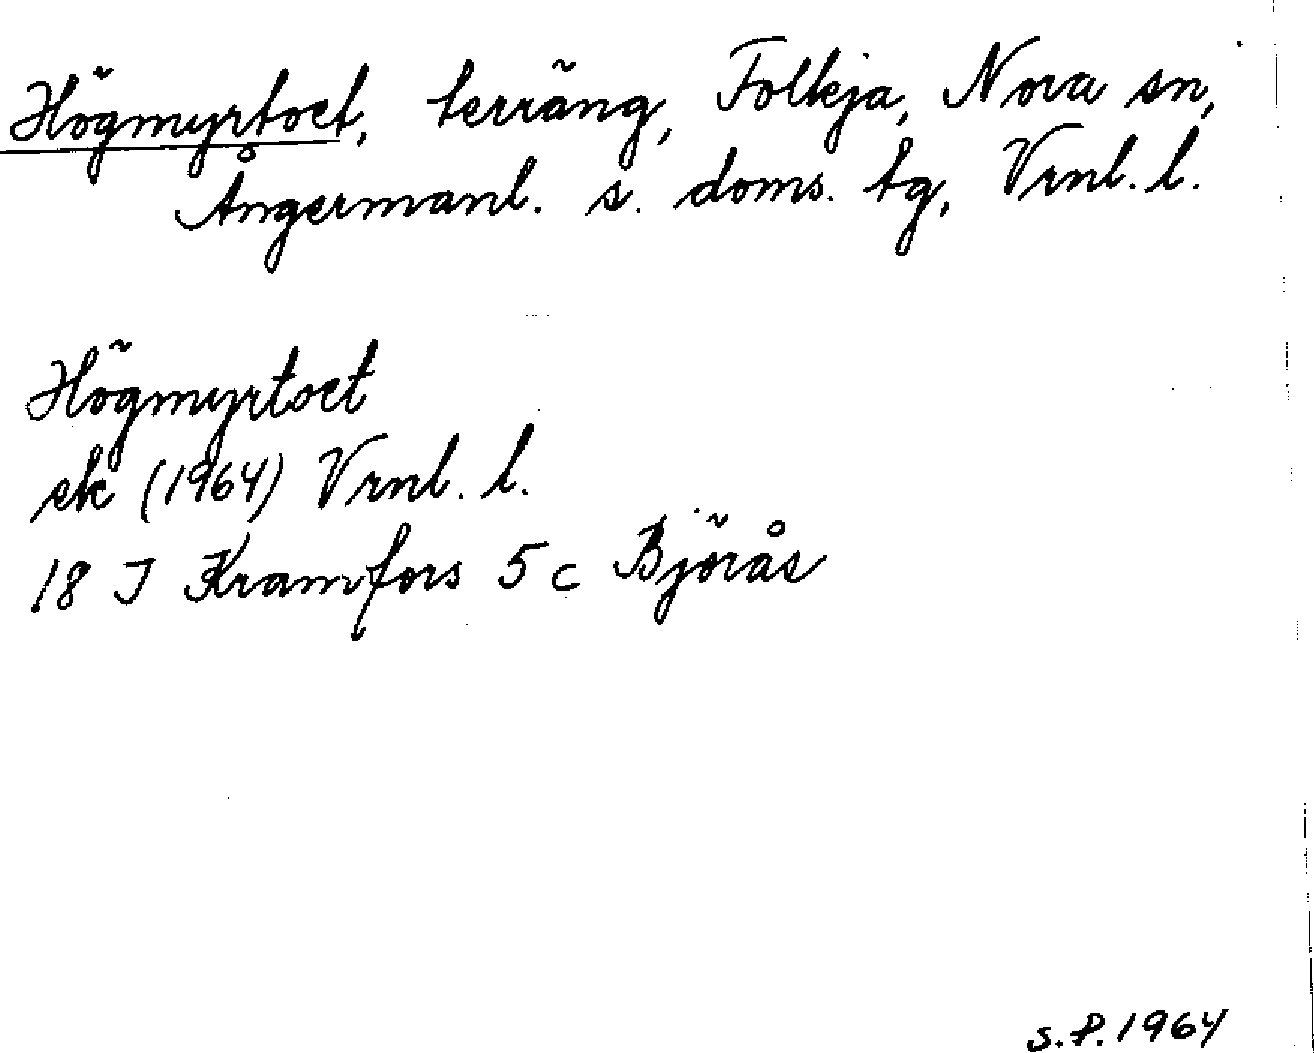 Högmyrtoet, terräng, Folkja, Nora sn,
Ångermanl. s. doms. tg, Vrnl. l.
Högmyrtoet
ek (1964) Vrnl. l.
18 I Kramfors 5 c Bjórås
s.P. 1964